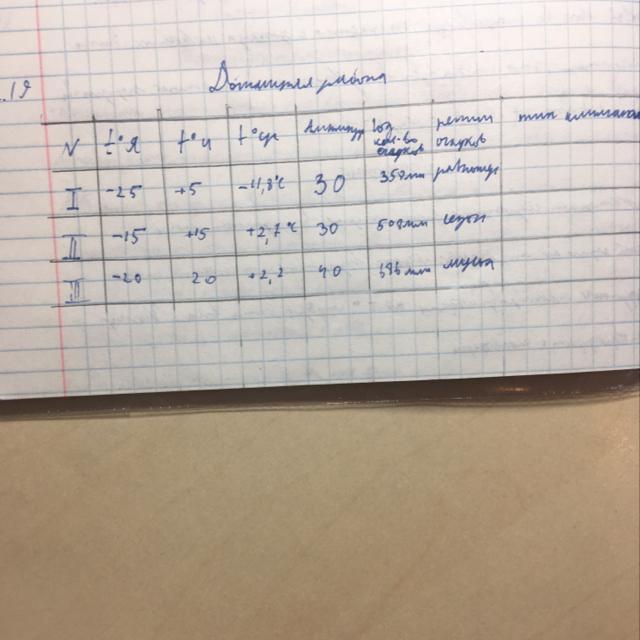 .19
Домашняя работа
N t°я t°и t°ср Амплитуд год. кол-во осадков режим осадков тип климата
I -25 +5 -11,8°C 30 358мм
II -15 +15 +2,7°C 30 508мм сезон
III -20 20 +2,2 40 мм